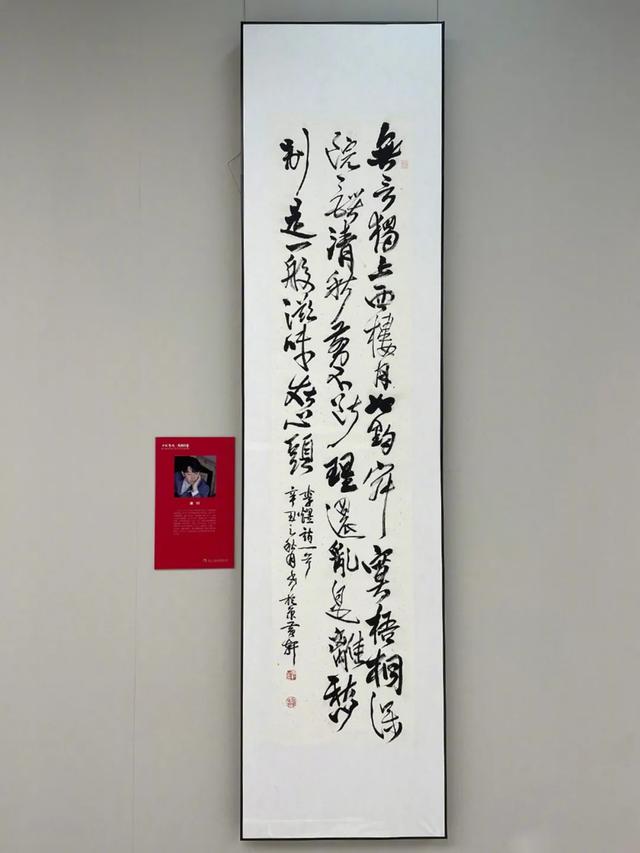 無言獨上西樓月如鉤寂寞梧桐深
院鎖清秋剪不斷理還亂是離愁
別是一般滋味在心頭
李煜詞一首
辛丑之秋月書於京
軒